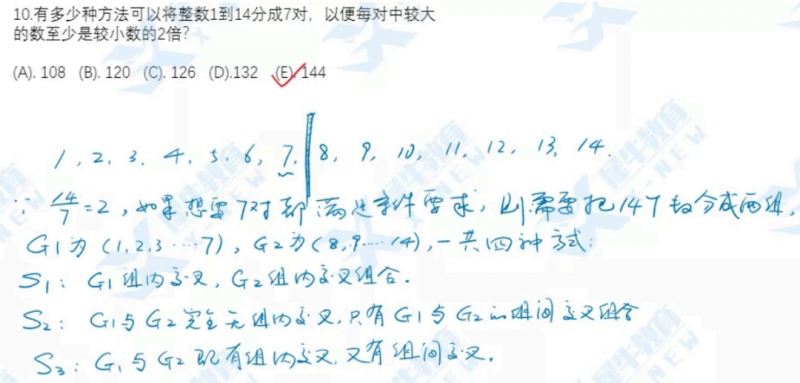 10.有多少种方法可以将整数1到14分成7对，以便每对中较大
的数至少是较小数的2倍?
(A). 108 (B). 120 (C). 126 (D).132 (E). 144
1, 2, 3, 4, 5, 6, 7, 8, 9, 10, 11, 12, 13, 14.
∵ 14/7=2, 如果想要7对都满足条件要求, 则需要把14个数分成两组,
G1为(1,2,3····7), G2为(8,9····14), 一共四种方式:
S1: G1组内交叉, G2组内交叉组合.
S2: G1与G2完全无组内交叉, 只有G1与G2的组间交叉组合
S3: G1与G2既有组内交叉, 又有组间交叉.